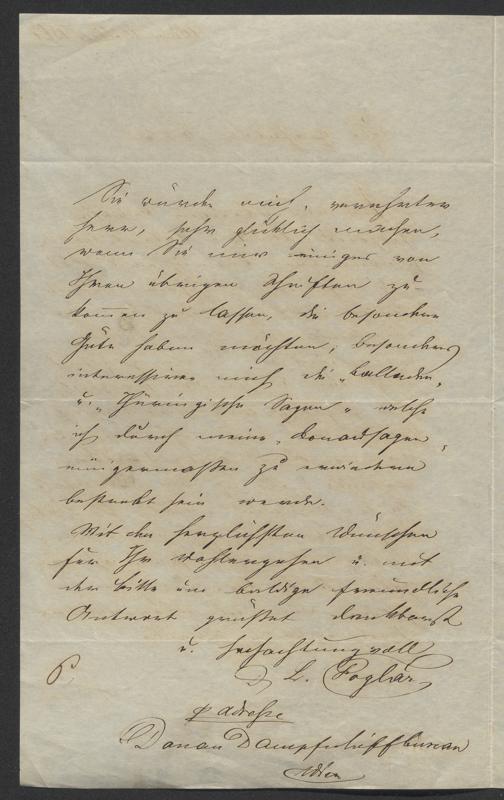 Sie würden mich, verehrter
Herr, sehr glücklich machen,
wenn Sie mir einiges von
Ihren übrigen Schriften zu-
kommen zu lassen, die besondere
Güte haben möchten, besonders
interessiren mich die „Balladen"
u. „Thüringische Sagen" welche
ich durch meine „Donausagen"
einigermaßen zu erwiedern
bestrebt sein werde.
Mit den herzlichsten Wünschen
für Ihr Wohlergehen u. mit
der Bitte um baldige freundliche
Antwort grüßet dankbarst
u. hochachtungsvoll
L. Foglar
p adresse
Donau Dampfschiffbureau
Wien